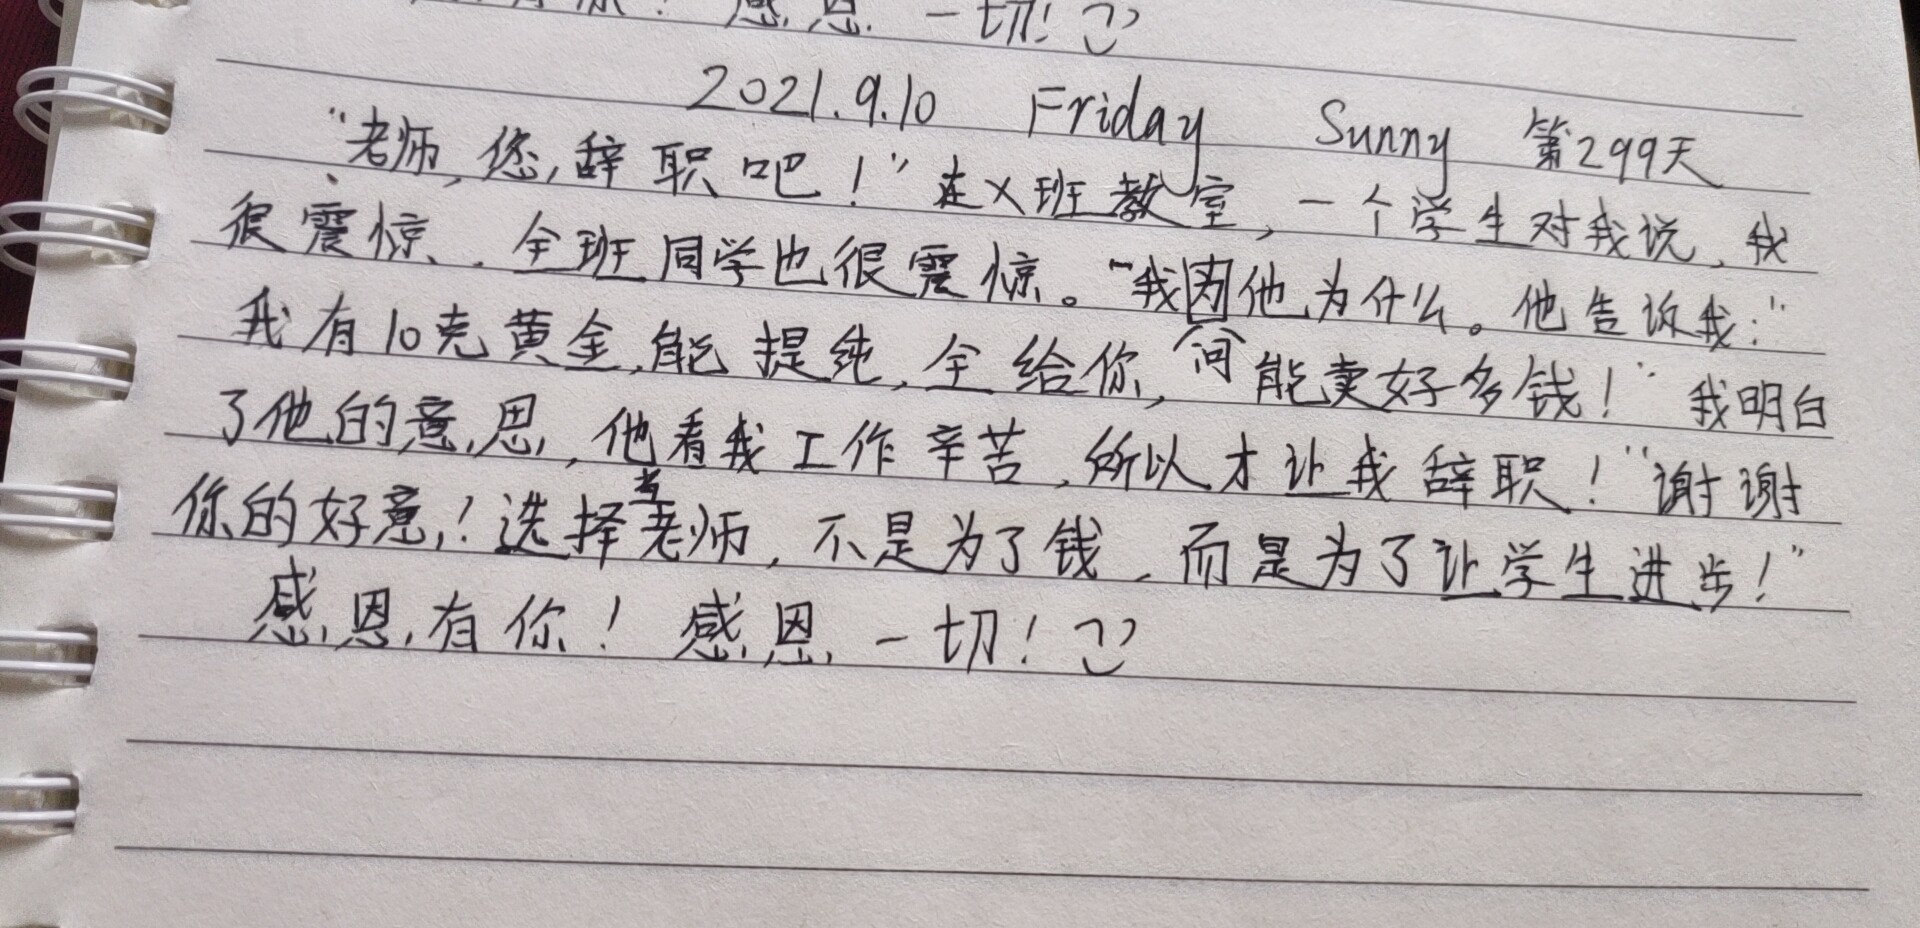 感恩 一切!
2021.9.10 Friday Sunny 第299天
"老师,您辞职吧!"在X班教室,一个学生对我说,我
很震惊,全班同学也很震惊。"我问他为什么。他告诉我:"
我有10克黄金,能提纯,全给你,能卖好多钱!"我明白
了他的意思,他看我工作辛苦,所以才让我辞职!"谢谢
你的好意!选择当老师,不是为了钱,而是为了让学生进步!"
感恩有你!感恩一切!